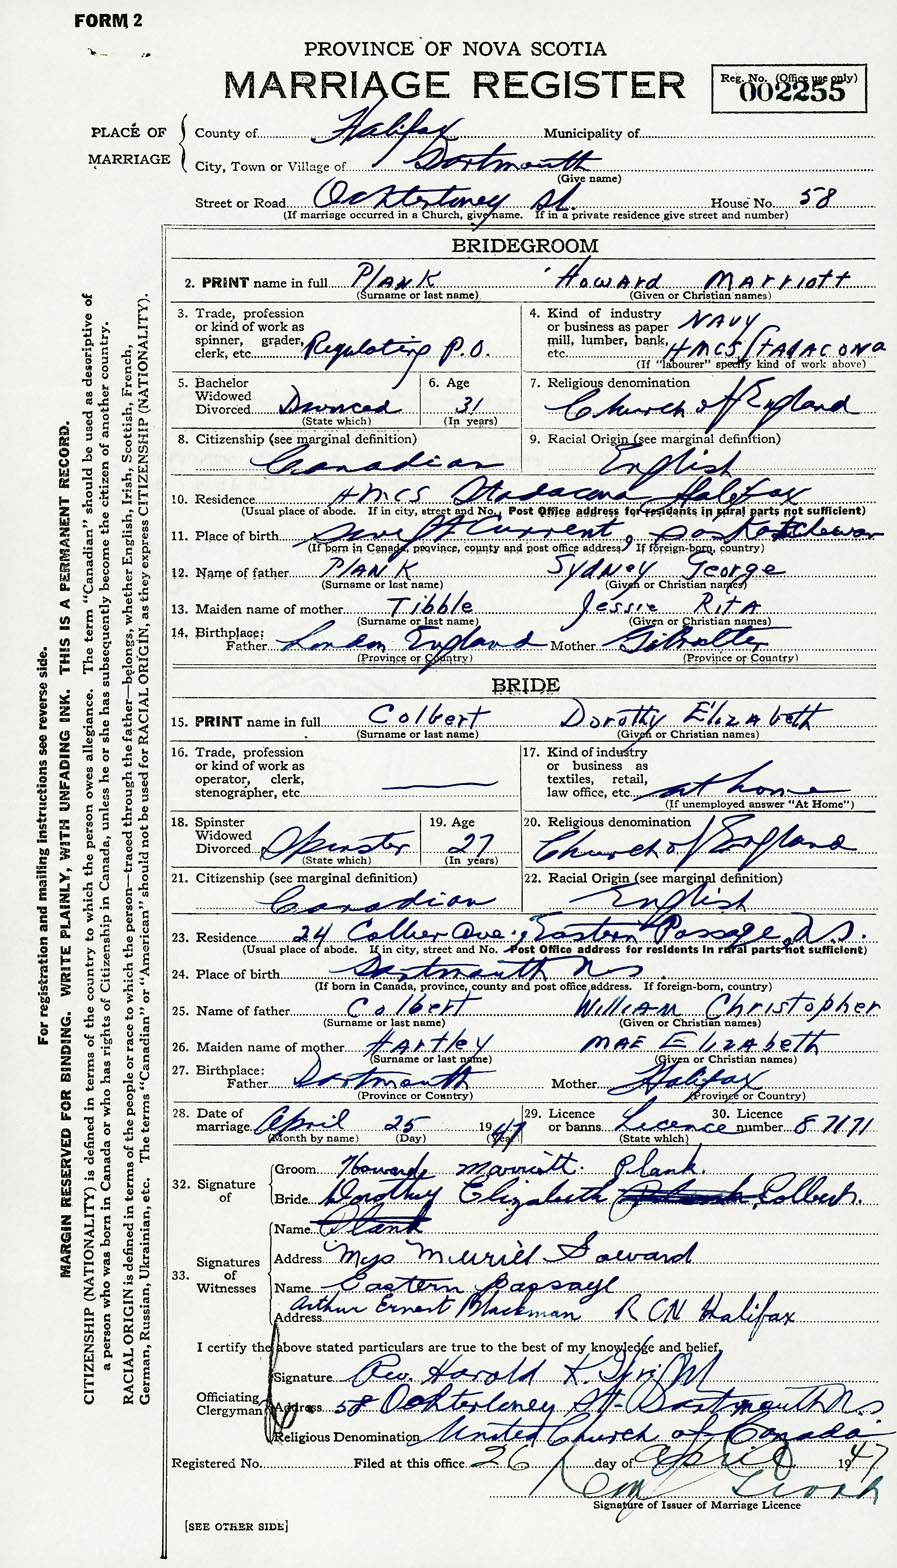 FORM 2
PROVINCE OF NOVA SCOTIA
MARRIAGE REGISTER
Reg. No. (Office use only)
002255
PLACE OF MARRIAGE
County of Halifax Municipality of
City, Town or Village of Dartmouth
(Give name)
Street or Road Ochterloney St. House No. 58
(If marriage occurred in a Church, give name. If in a private residence give street and number)
BRIDEGROOM
2. PRINT name in full PLANK Howard Marriott
(Surname or last name) (Given or Christian names)
3. Trade, profession or kind of work as spinner, grader, clerk, etc. Regulating P.O.
4. Kind of industry or business as paper mill, lumber, bank, etc. NAVY HMCS STADACONA
(If "labourer" specify kind of work above)
5. Bachelor Widowed Divorced Divorced
(State which)
6. Age 31
(In years)
7. Religious denomination Church of England
8. Citizenship (see marginal definition) Canadian
9. Racial Origin (see marginal definition) English
10. Residence HMCS Stadacona Halifax
(Usual place of abode. If in city, street and No. Post Office address for residents in rural parts not sufficient)
11. Place of birth Swift Current, Saskatchewan
(If born in Canada, province, county and post office address. If foreign-born, country)
12. Name of father PLANK SYDNEY George
(Surname or last name) (Given or Christian names)
13. Maiden name of mother Tibble Jessie RITA
(Surname or last name) (Given or Christian names)
14. Birthplace: Father London England Mother Gibralter
(Province or Country) (Province or Country)
BRIDE
15. PRINT name in full Colbert Dorothy Elizabeth
(Surname or last name) (Given or Christian names)
16. Trade, profession or kind of work as operator, clerk, stenographer, etc.
17. Kind of industry or business as textiles, retail, law office, etc. at home
(If unemployed answer "At Home")
18. Spinster Widowed Divorced Spinster
(State which)
19. Age 27
(In years)
20. Religious denomination Church of England
21. Citizenship (see marginal definition) Canadian
22. Racial Origin (see marginal definition) English
23. Residence 24 Collier Ave; Eastern Passage, N.S.
(Usual place of abode. If in city, street and No. Post Office address for residents in rural parts not sufficient)
24. Place of birth Dartmouth N S
(If born in Canada, province, county and post office address. If foreign-born, country)
25. Name of father Colbert William Christopher
(Surname or last name) (Given or Christian names)
26. Maiden name of mother Hartley MAE Elizabeth
(Surname or last name) (Given or Christian names)
27. Birthplace: Father Dartmouth Mother Halifax
(Province or Country) (Province or Country)
28. Date of marriage April 25 1947
(Month by name) (Day) (Year)
29. Licence or banns Licence
(State which)
30. Licence number 87171
32. Signature of
Groom Howard Marriott Plank.
Bride Dorothy Elizabeth Plank Colbert.
33. Signatures of Witnesses
Name Plank
Address Mrs Murriel Soward
Name Eastern Passage
Address Arthur Ernest Blackman RCN Halifax
I certify the above stated particulars are true to the best of my knowledge and belief.
Officiating Clergyman
Signature Rev. Harold
Address 58 Ochterloney St- Dartmouth N.S
Religious Denomination United Church of Canada
Registered No. Filed at this office 26 day of April 1947
Signature of Issuer of Marriage Licence
[SEE OTHER SIDE]
For registration and mailing instructions see reverse side.
MARGIN RESERVED FOR BINDING. WRITE PLAINLY, WITH UNFADING INK. THIS IS A PERMANENT RECORD.
CITIZENSHIP (NATIONALITY) is defined in terms of the country to which the person owes allegiance. The term "Canadian" should be used as descriptive of
a person who was born in Canada or who has rights of Citizenship in Canada, unless he or she has subsequently become the citizen of another country.
RACIAL ORIGIN is defined in terms of the people or race to which the person—traced through the father—belongs, whether English, Irish, Scottish, French,
German, Russian, Ukrainian, etc. The terms "Canadian" or "American" should not be used for RACIAL ORIGIN, as they express CITIZENSHIP (NATIONALITY).